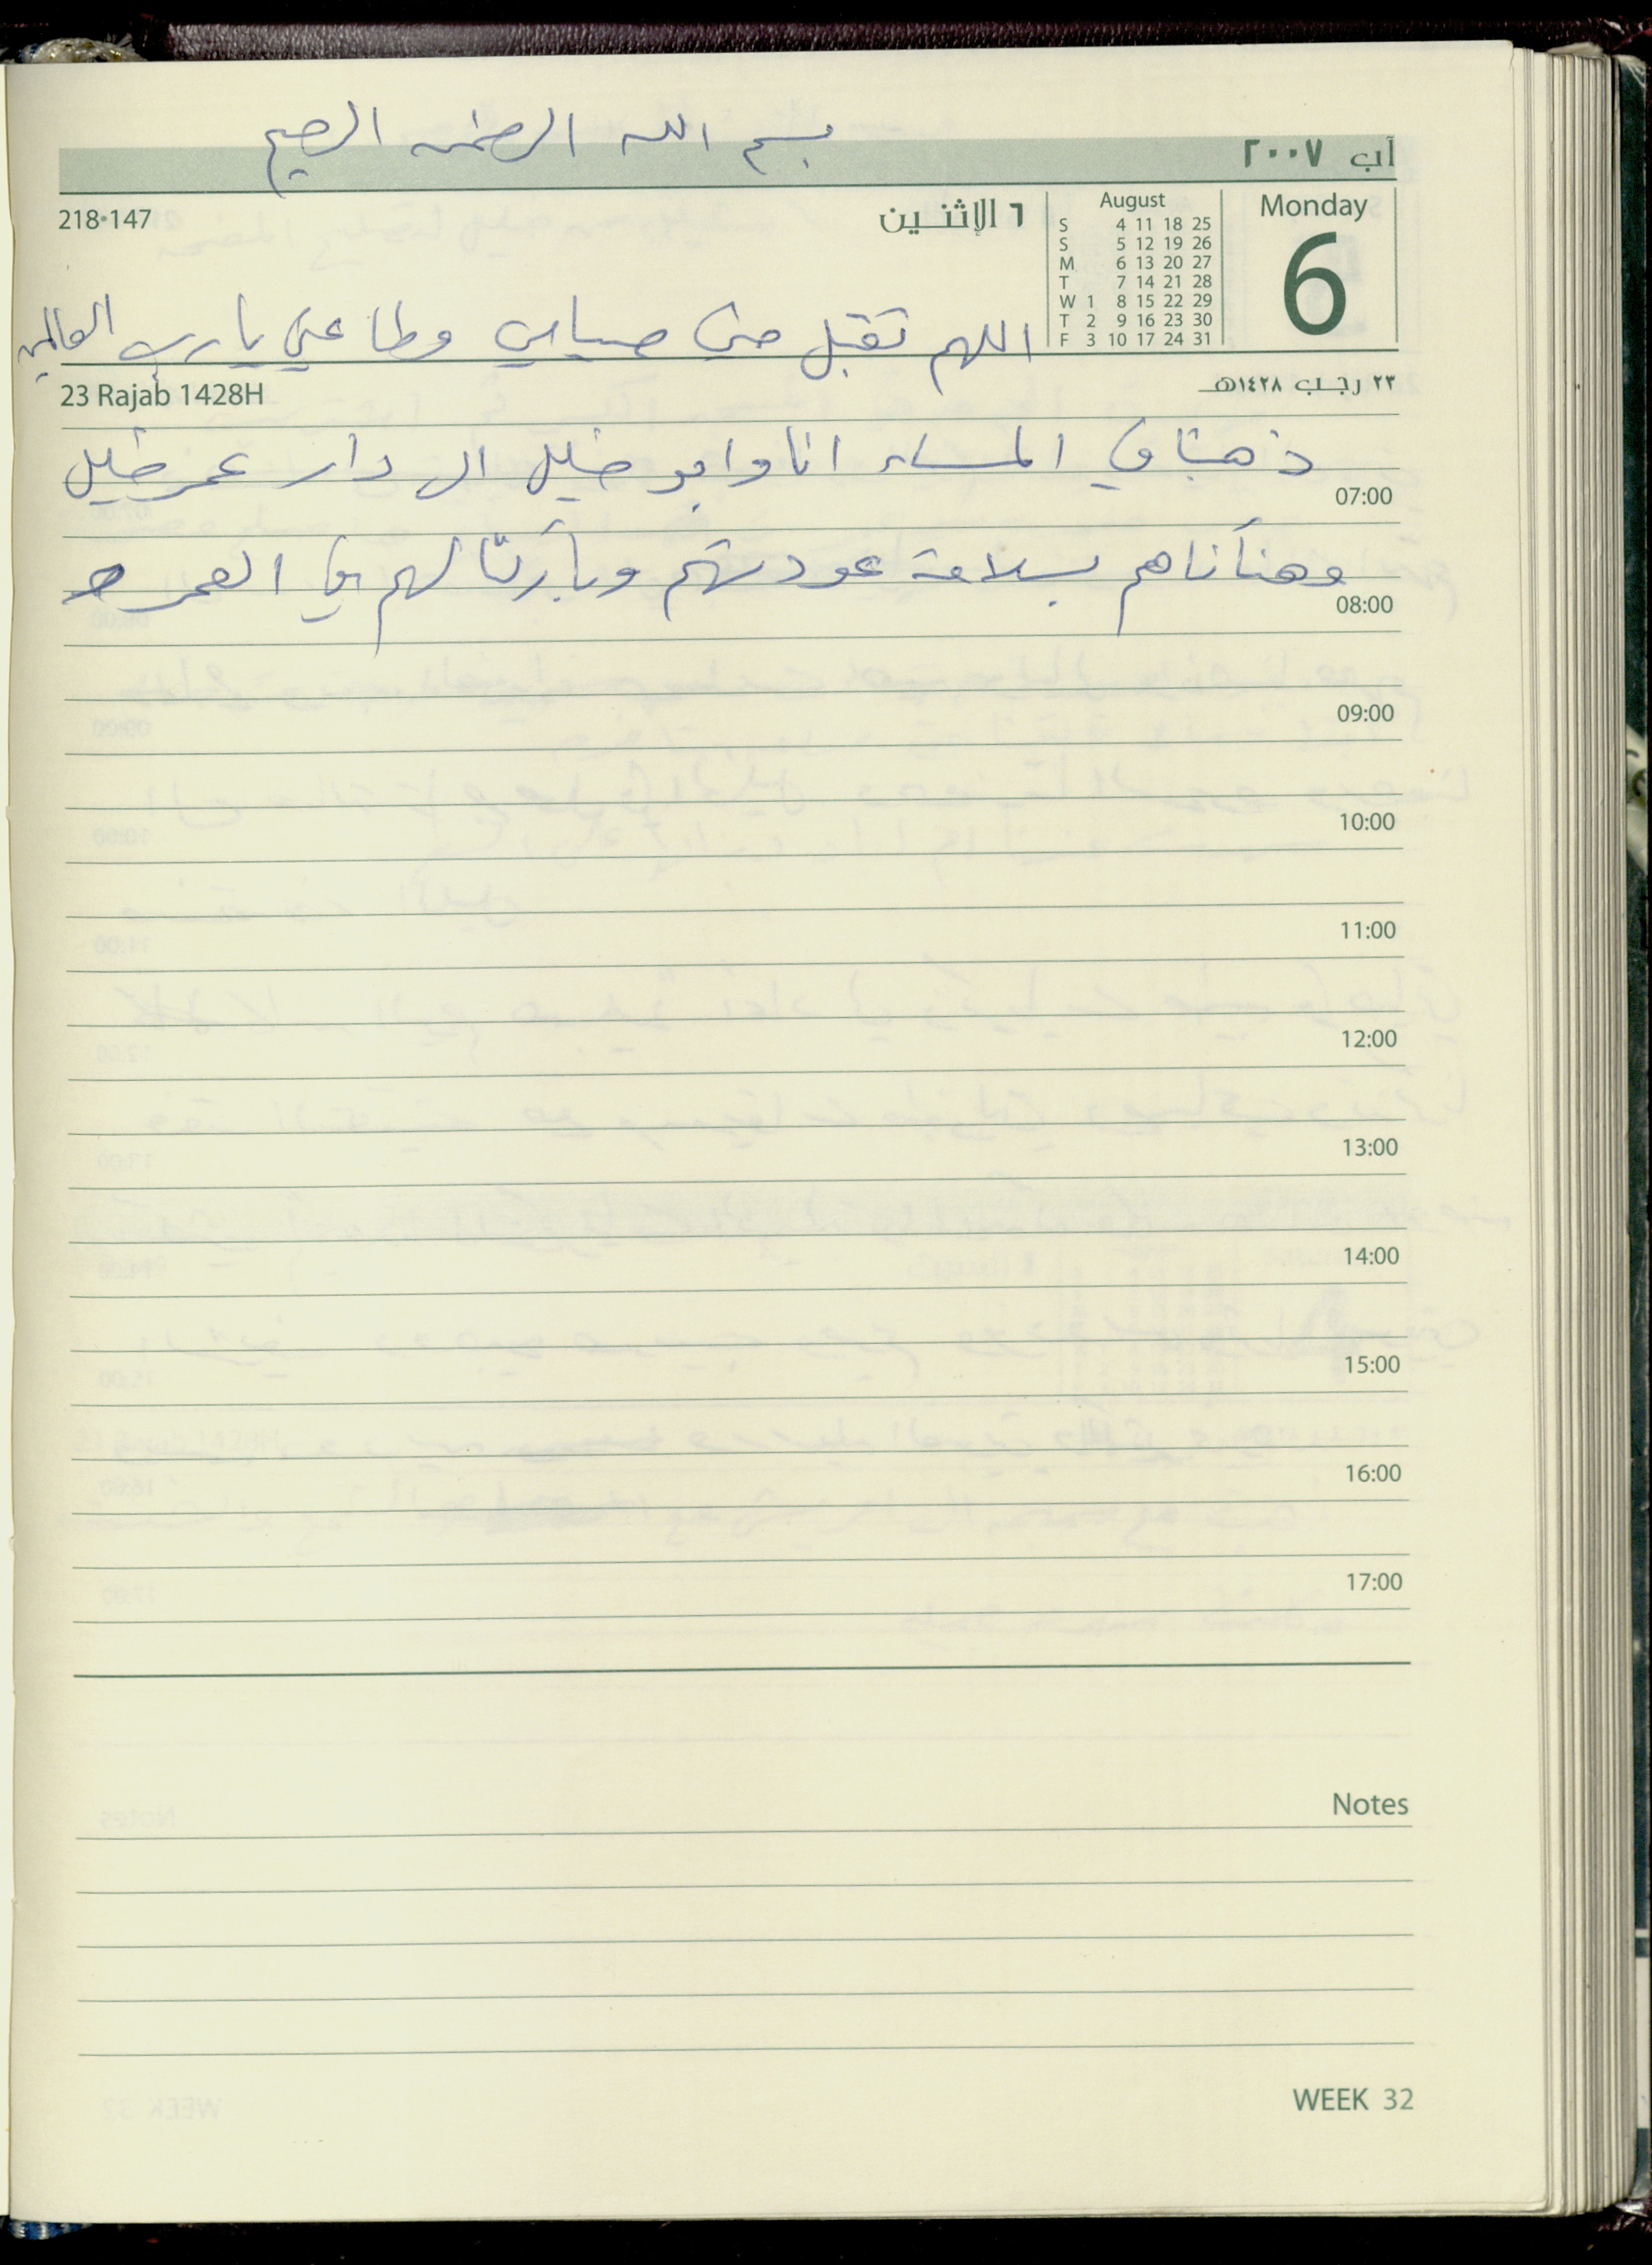 بسم الله الرحمن الرحيم
آب ٢٠٠٧
Monday
6
August
S 4 11 18 25
S 5 12 19 26
M 6 13 20 27
T 7 14 21 28
W 1 8 15 22 29
T 2 9 16 23 30
F 3 10 17 24 31
٦ الإثنين
218•147
اللهم تقبل مني صيامي وطاعتي يا رب العالمين
٢٣ رجب ١٤٢٨هـ
23 Rajab 1428H
ذهبنا في المساء انا وابو خليل الى دار عمر خليل
07:00
وهنأناهم بسلامة عودتهم وباركنا لهم في العمره
08:00
09:00
10:00
11:00
12:00
13:00
14:00
15:00
16:00
17:00
Notes
WEEK 32